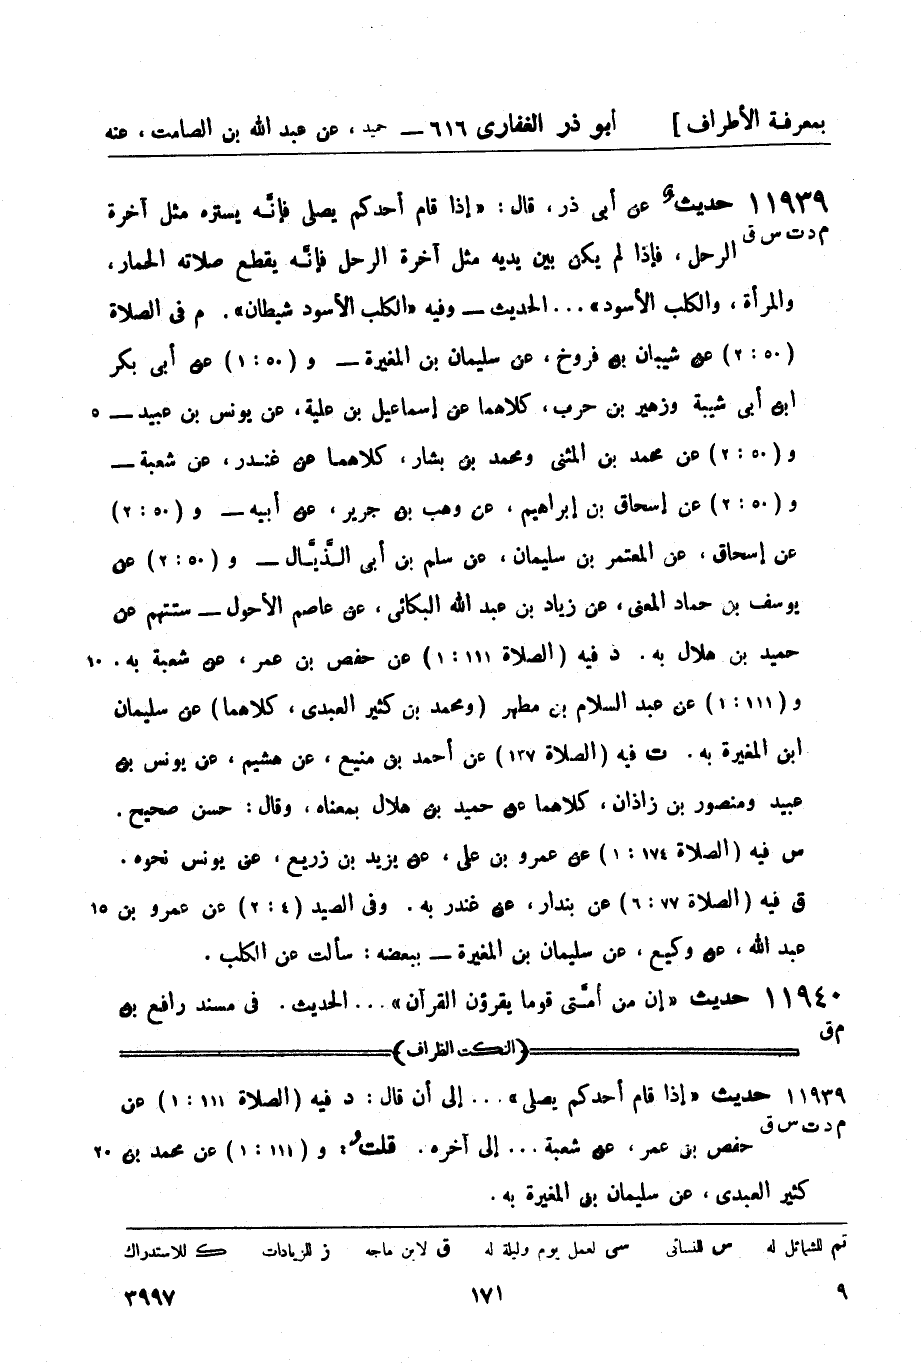 بمعرفة الأطراف ] أبو ذر الغفارى ٦١٦ — حميد ، عن عبد الله بن الصامت ، عنه
١١٩٣٩ حديث عن أبى ذر ، قال : «إذا قام أحدكم يصلى فإنَّه يستره مثل آخرة
م د ت س ق
الرحل ، فإذا لم يكن بين يديه مثل آخرة الرحل فإنَّه يقطع صلاته الحمار ،
والمرأة ، والكلب الأسود» ... الحديث — وفيه «الكلب الأسود شيطان» . م فى الصلاة
(٥٠ : ٢) عن شيبان بن فروخ ، عن سليمان بن المغيرة — و (٥٠ : ١) عن أبى بكر
ابن أبى شيبة وزهير بن حرب ، كلاهما عن إسماعيل بن علية ، عن يونس بن عبيد — ٥
و (٥٠ : ٢) عن محمد بن المثنى ومحمد بن بشار ، كلاهما عن غندر ، عن شعبة —
و (٥٠ : ٢) عن إسحاق بن إبراهيم ، عن وهب بن جرير ، عن أبيه — و (٥٠ : ٢)
عن إسحاق ، عن المعتمر بن سليمان ، عن سلم بن أبى الذَّيَّال — و (٥٠ : ٢) عن
يوسف بن حماد المعنى ، عن زياد بن عبد الله البكائى ، عن عاصم الأحول — ستتهم عن
حميد بن هلال به . د فيه (الصلاة ١١١ : ١) عن حفص بن عمر ، عن شعبة به . ١٠
و (١١١ : ١) عن عبد السلام بن مطهر (ومحمد بن كثير العبدى ، كلاهما) عن سليمان
ابن المغيرة به . ت فيه (الصلاة ١٣٧) عن أحمد بن منيع ، عن هشيم ، عن يونس بن
عبيد ومنصور بن زاذان ، كلاهما عن حميد بن هلال بمعناه ، وقال : حسن صحيح .
س فيه (الصلاة ١٧٤ : ١) عن عمرو بن على ، عن يزيد بن زريع ، عن يونس نحوه .
ق فيه (الصلاة ٧٧ : ٦) عن بندار ، عن غندر به . وفى الصيد (٤ : ٢) عن عمرو بن ١٥
عبد الله ، عن وكيع ، عن سليمان بن المغيرة — ببعضه : سألت عن الكلب .
١١٩٤٠ حديث «إن من أمَّتى قوما يقرؤن القرآن» ... الحديث . فى مسند رافع بن
م ق
(النكت الظراف)
١١٩٣٩ حديث «إذا قام أحدكم يصلى» ... إلى أن قال : د فيه (الصلاة ١١١ : ١) عن
م د ت س ق
حفص بن عمر ، عن شعبة ... إلى آخره . قلت : و (١١١ : ١) عن محمد بن ٢٠
كثير العبدى ، عن سليمان بن المغيرة به .
تم للشمائل له س للنسائى سى لعمل يوم وليلة له ق لابن ماجه ز للزيادات ك للاستدراك
٩ ١٧١ ٣٩٩٧